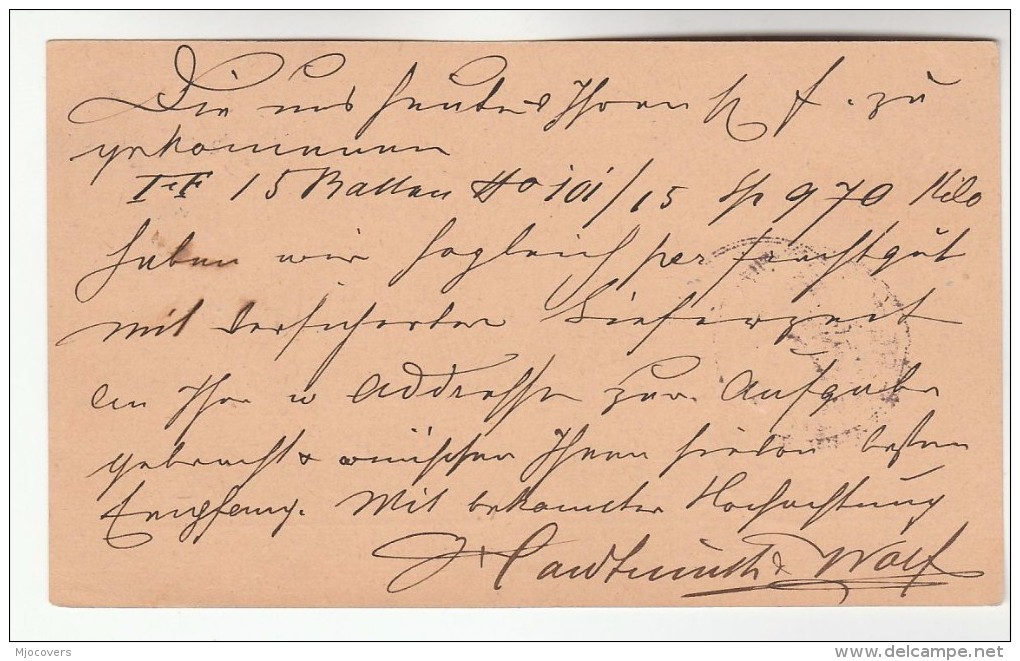 Die uns heute Ihnen f. zu
gekommenen
I & F 15 Ballen No 101/15 Sp 970 Kilo
haben wir sogleich per Frachtgut
mit versicherter Lieferzeit
an Ihre w Addresse zur Aufgabe
gebracht & wünschen Ihnen hievon besten
Empfang. Mit bekannter Hochachtung
& Wolf
Mjocovers
delcampe.net